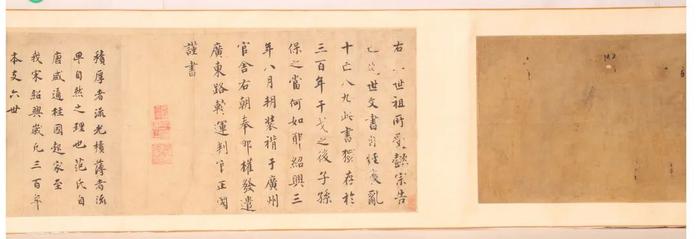 右八世祖所受懿宗告
世文書經戔亂
十亡八九此書獨存於
三百年干戈之後子孫
保之當何如耶紹興三
年八月朔裝褙于廣州
官舍右朝奉郎權發遣
廣東路轉運判官正國
謹書
積厚者流光積薄者流
卑自然之理也范氏自
唐咸通柱國起家至
我宋紹興歲凡三百年
本支六世